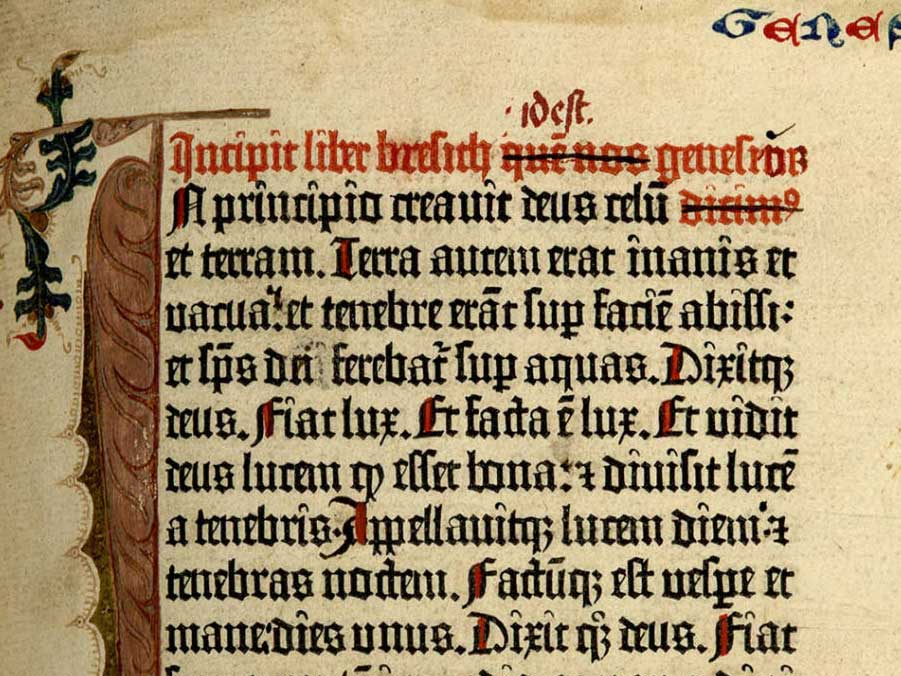 Genes
·idest.
Incipit liber bresich quē nos geneseos
N principio creavit deus celū dicim⁹
et terram. Terra autem erat inanis et
vacua: et tenebre erāt sup facie͞ abissi:
et sp̄s dei ferebat᷑ sup aquas. Dixitqꝫ
deus. Fiat lux. Et facta ē lux. Et vidit
deus lucem ꝙ esset bona: ⁊ divisit lucē
a tenebris. Appellavitqꝫ lucem diem ⁊
tenebras noctem. Factūqꝫ est vespe et
mane dies unus. Dixit qꝫ deus. Fiat